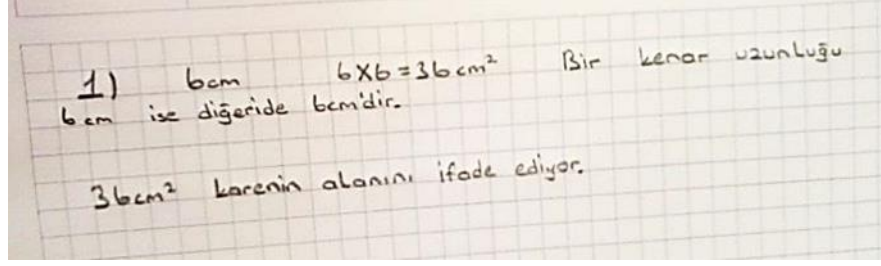 1) 6cm 6x6=36cm² Bir kenar uzunluğu
6cm ise diğeride 6cm'dir.
36cm² karenin alanını ifade ediyor.